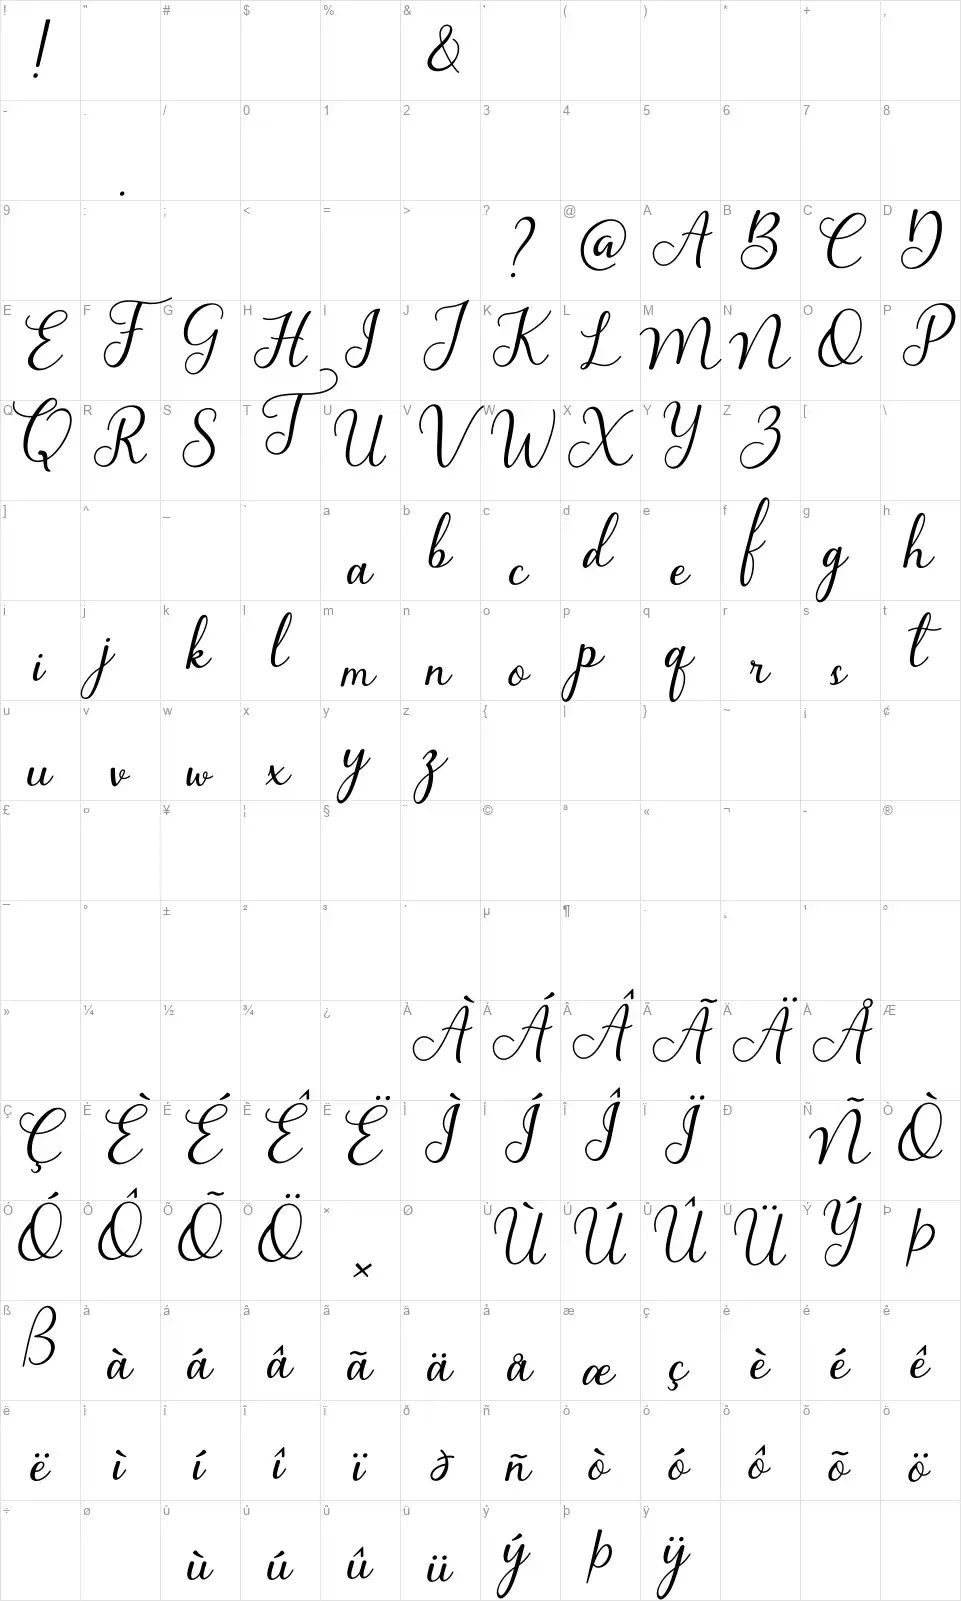 ! " # $ % & ' ( ) * + ,
! &
- . / 0 1 2 3 4 5 6 7 8
.
9 : ; < = > ? @ A B C D
? @ A B C D
E F G H I J K L M N O P
E F G H I J K L M N O P
Q R S T U V W X Y Z [ \
Q R S T U V W X Y Z
] ^ _ ` a b c d e f g h
a b c d e f g h
i j k l m n o p q r s t
i j k l m n o p q r s t
u v w x y z { | } ~ ¡ ¢
u v w x y z
£ ¤ ¥ ¦ § ¨ © ª « ¬ - ®
¯ ° ± ² ³ ´ µ ¶ · ¸ ¹ º
» ¼ ½ ¾ ¿ À Á Â Ã Ä Å Æ
À Á Â Ã Ä Å
Ç È É Ê Ë Ì Í Î Ï Ð Ñ Ò
Ç È É Ê Ë Ì Í Î Ï Ñ Ò
Ó Ô Õ Ö × Ø Ù Ú Û Ü Ý Þ
Ó Ô Õ Ö × Ù Ú Û Ü Ý Þ
ß à á â ã ä å æ ç è é ê
ß à á â ã ä å æ ç è é ê
ë ì í î ï ð ñ ò ó ô õ ö
ë ì í î ï ð ñ ò ó ô õ ö
÷ ø ù ú û ü ý þ ÿ
ù ú û ü ý þ ÿ